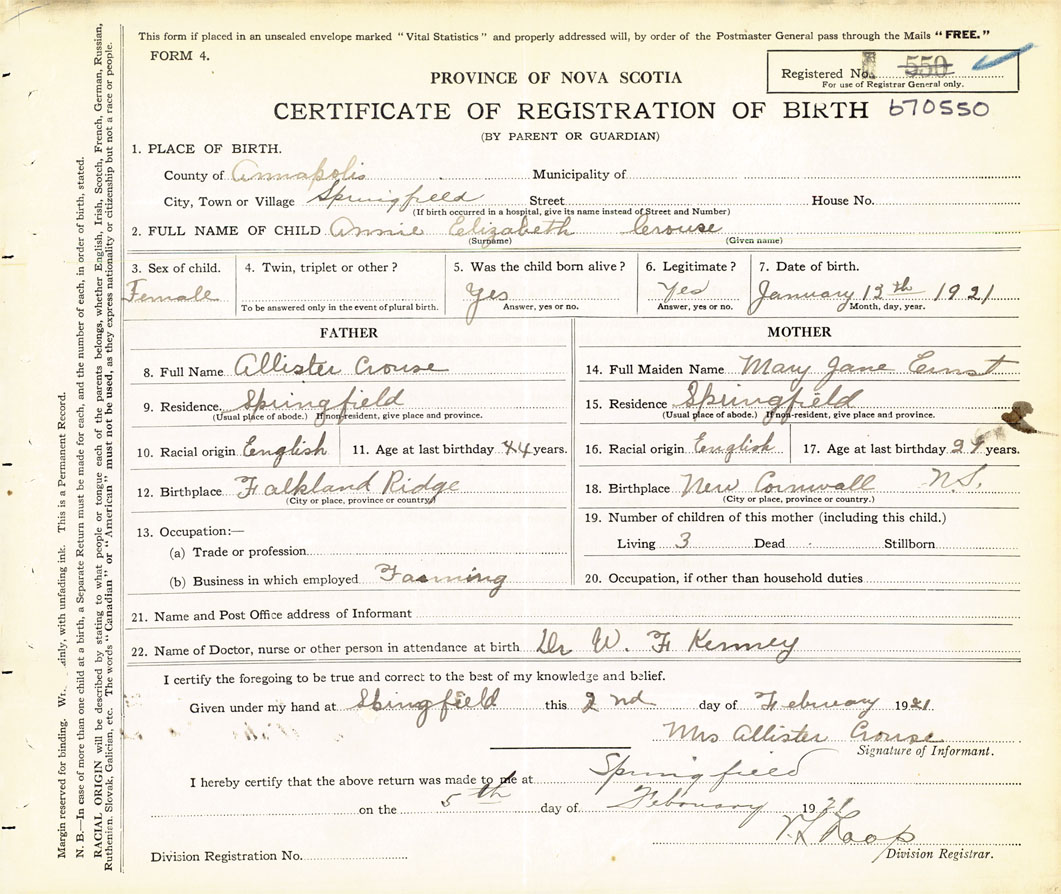 This form if placed in an unsealed envelope marked "Vital Statistics" and properly addressed will, by order of the Postmaster General pass through the Mails "FREE."
FORM 4.
Registered No. 550
For use of Registrar General only.
PROVINCE OF NOVA SCOTIA
CERTIFICATE OF REGISTRATION OF BIRTH 670550
(BY PARENT OR GUARDIAN)
1. PLACE OF BIRTH.
County of Annapolis Municipality of
City, Town or Village Springfield Street House No.
(If birth occurred in a hospital, give its name instead of Street and Number)
2. FULL NAME OF CHILD Annie Elizabeth Crouse
(Surname) (Given name)
3. Sex of child. 4. Twin, triplet or other? 5. Was the child born alive? 6. Legitimate? 7. Date of birth.
Female Yes Yes January 13th 1921
To be answered only in the event of plural birth. Answer, yes or no. Answer, yes or no. Month, day, year.
FATHER MOTHER
8. Full Name Allister Crouse 14. Full Maiden Name Mary Jane Ernst
9. Residence Springfield 15. Residence Springfield
(Usual place of abode.) If non-resident, give place and province. (Usual place of abode.) If non-resident, give place and province.
10. Racial origin English 11. Age at last birthday 44 years. 16. Racial origin English 17. Age at last birthday years.
12. Birthplace Falkland Ridge 18. Birthplace New Cornwall N.S.
(City or place, province or country) (City or place, province or country.)
13. Occupation:— 19. Number of children of this mother (including this child.)
(a) Trade or profession Living 3 Dead Stillborn
(b) Business in which employed Farming 20. Occupation, if other than household duties
21. Name and Post Office address of Informant
22. Name of Doctor, nurse or other person in attendance at birth Dr W. F. Kenney
I certify the foregoing to be true and correct to the best of my knowledge and belief.
Given under my hand at Springfield this 2nd day of February 1921
Mrs Allister Crouse
Signature of Informant.
I hereby certify that the above return was made to me at Springfield
on the 5th day of February 1921
Loop
Division Registration No. Division Registrar.
Margin reserved for binding. inly, with unfading ink. This is a Permanent Record.
N. B.—In case of more than one child at a birth, a Separate Return must be made for each, and the number of each, in order of birth, stated.
RACIAL ORIGIN will be described by stating to what people or tongue each of the parents belongs, whether English, Irish, Scotch, French, German, Russian,
Ruthenien, Slovak, Galician, etc. The words "Canadian" or "American" must not be used, as they express nationality or citizenship but not a race or people.